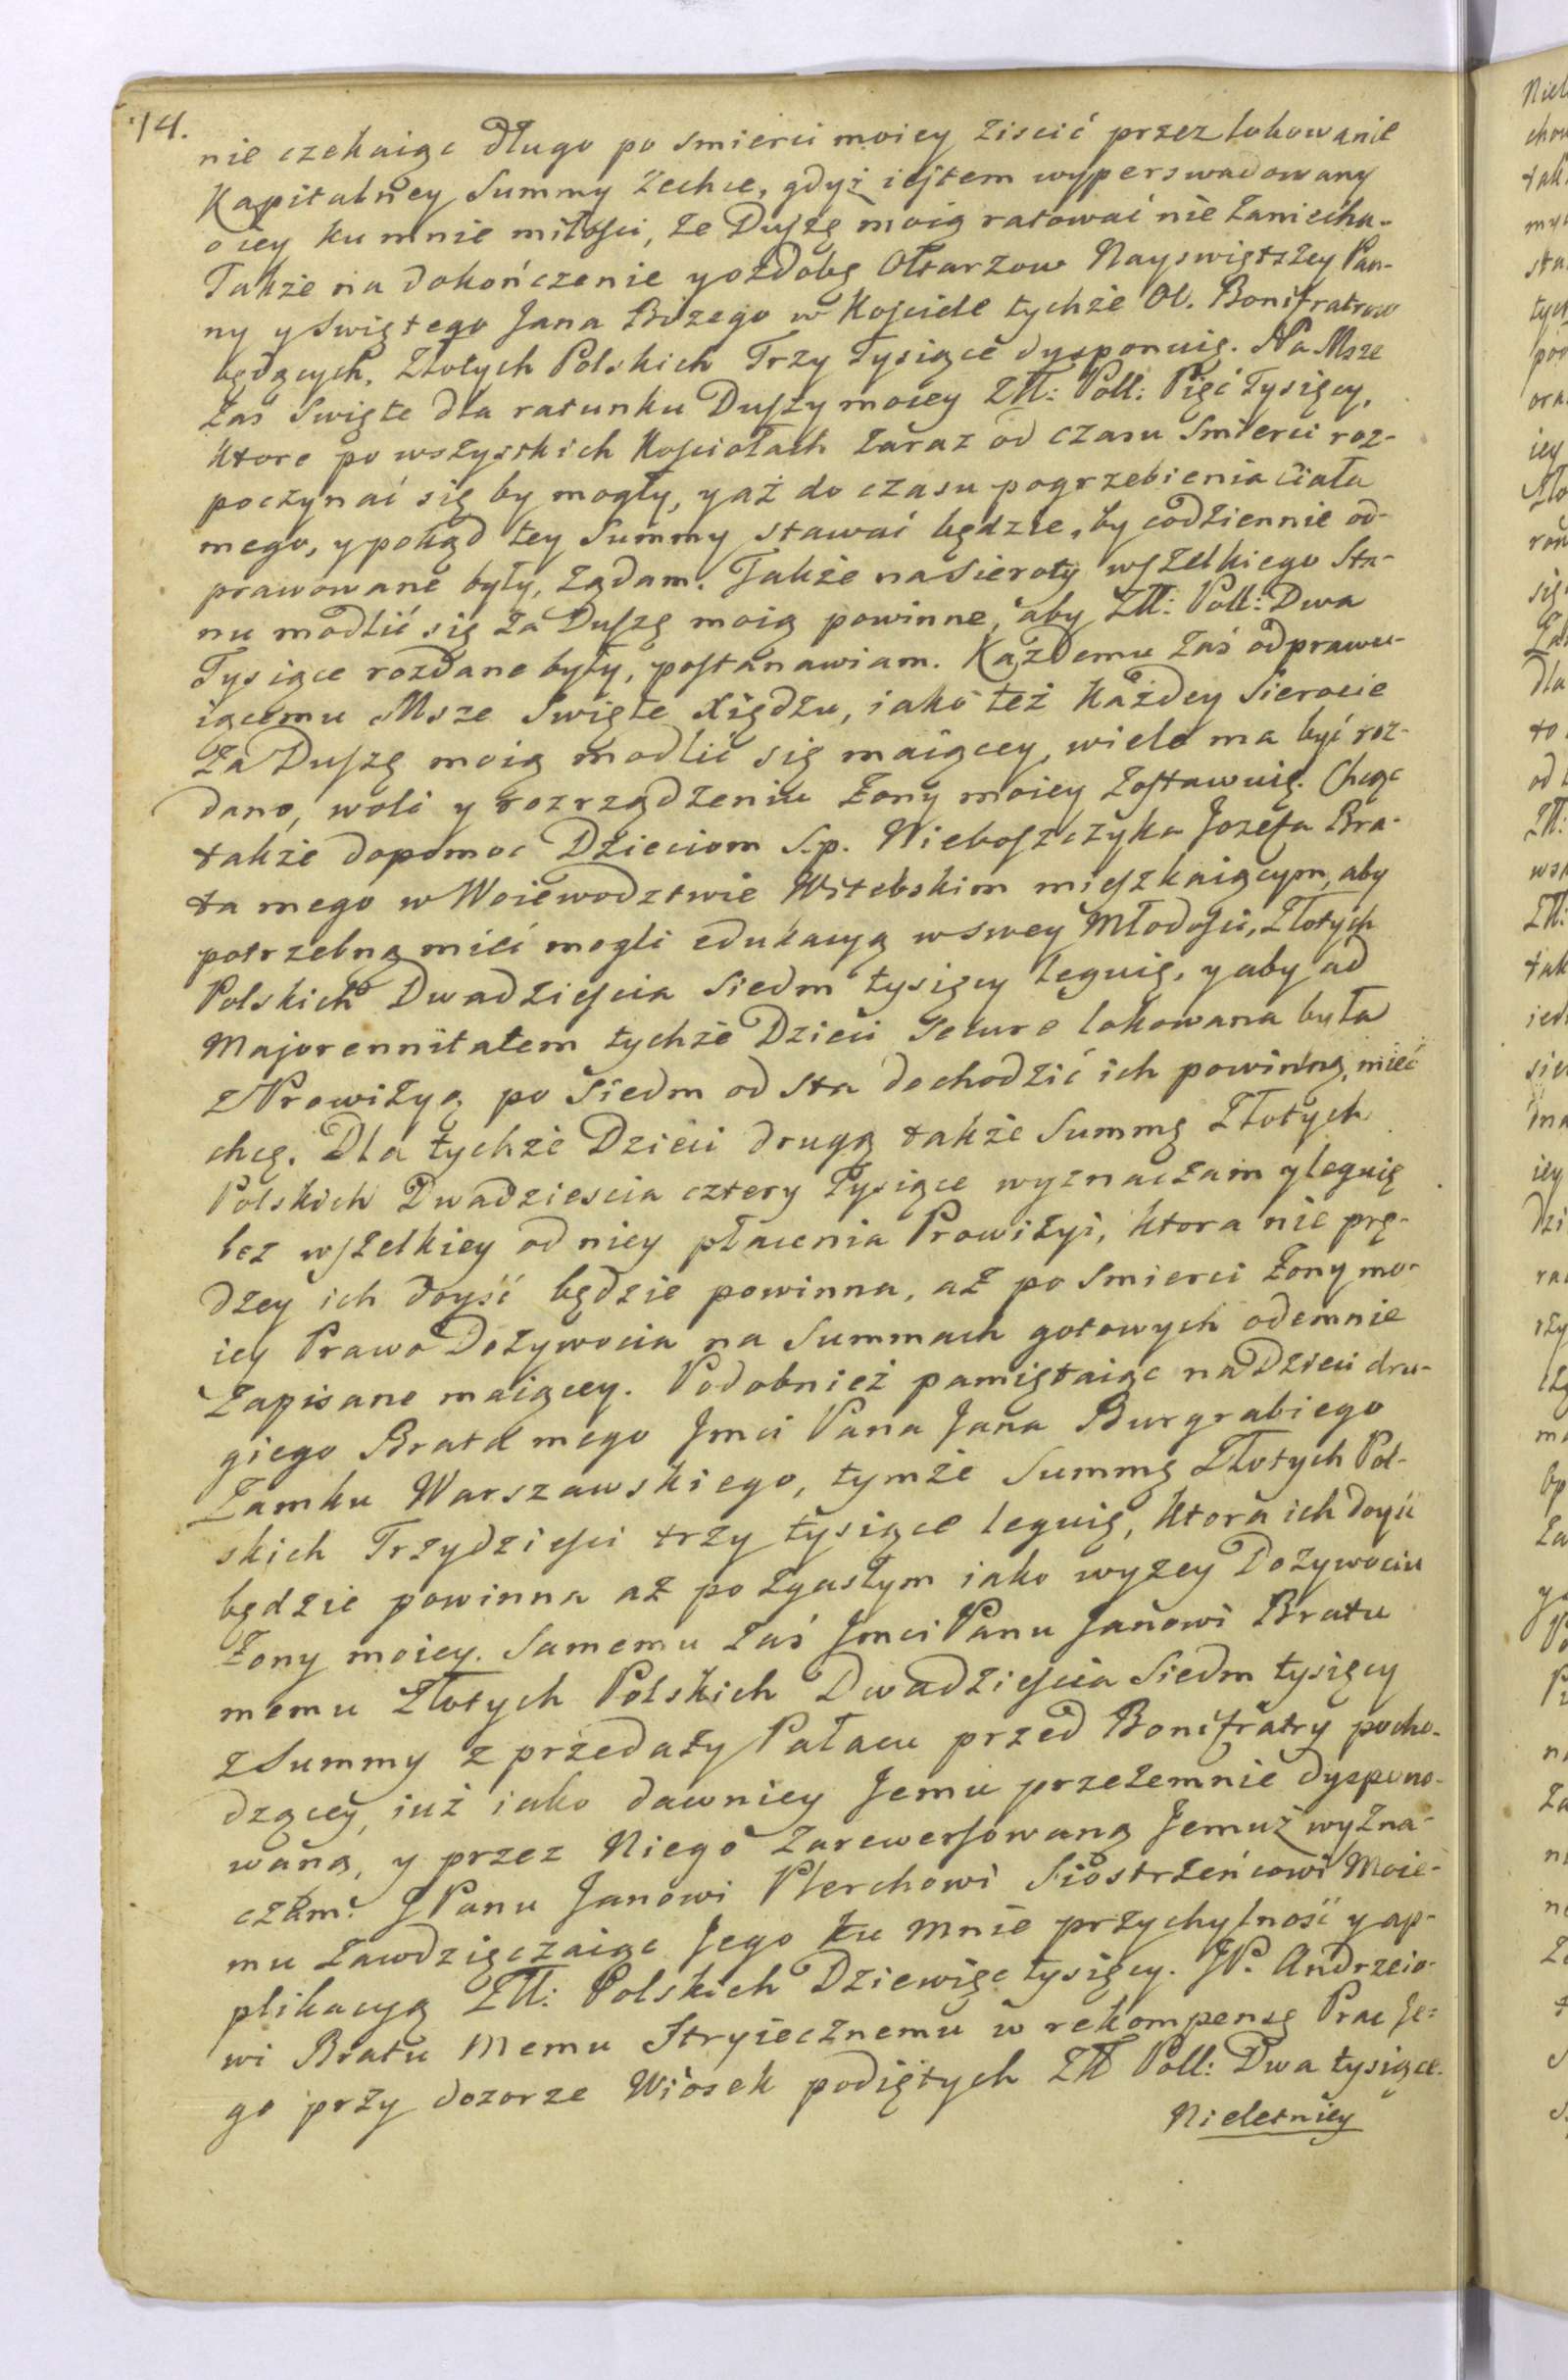 14.
nie czekaiąc długo po smierci moiey ziscić przez lokowanie
Kapitalney Summy zechce, gdyż iestem wyperswadowany
o iey ku mnie miłości, że Duszę moią ratować nie zaniecha.
Także na dokończenie y ozdobę Ołtarzow Nayswiętszey Pan-
ny y Swiętego Jana Bożego w Kościele tychże OO. Bonifratrow
będących, Złotych Polskich Trzy Tysiące dysponuię. Na Msze
zaś Swięte dla ratunku Duszy moiey Złł: Poll: Pięć Tysięcy,
ktore po wszystkich Kościołach zaraz od czasu Smierci roz-
poczynać się by mogły, y aż do czasu pogrzebienia Ciała
mego, y pokąd tey Summy stawać będzie, by codziennie od-
prawowane były, żądam. Także na Sieroty wszelkiego Sta-
nu modlić się za Duszę moią powinne, aby Złł: Poll: Dwa
Tysiące rozdane były, postanawiam. Każdemu zaś odprawu-
iącemu Msze Swięte Xiędzu, iako też każdey Sierocie
za Duszę moią modlić się maiącey, wiele ma być roz-
dano, woli y rozrządzeniu Żony moiey zostawuię. Chcąc
także dopomoc Dzieciom S.p. Nieboszczyka Jozefa Bra-
ta mego w Woiewodztwie Witebskim mieszkaiącym, aby
potrzebną mieć mogli edukacyą w swey Młodości, Złotych
Polskich Dwadzieścia Siedm tysięcy leguię, y aby ad
Majorennitatem tychże Dzieci Secure lokowana była
z Prowizyą po Siedm od sta dochodzić ich powinną, mieć
chcę. Dla tychże Dzieci drugą także Summę Złotych
Polskich Dwadziescia cztery Tysiące wyznaczam y leguię
bez wszelkiey od niey płacenia Prowizyi, ktora nie prę-
dzey ich doyść będzie powinna, aż po Smierci Żony mo-
iey Prawo Dożywocia na Summach gotowych odemnie
zapisane maiącey. Podobnież pamiętaiąc na Dzieci dru-
giego Brata mego Jmci Pana Jana Burgrabiego
Zamku Warszawskiego, tymże Summę Złotych Pol-
skich Trzydzieści trzy tysiące leguię, ktora ich doyść
będzie powinna aż po zgasłym iako wyżey Dożywociu
Żony moiey. Samemu zaś Jmci Panu Janowi Bratu
memu Złotych Polskich Dwadzieścia Siedm tysięcy
z Summy z przedaży Pałacu przed Bonifratry pocho-
dzącey, iuż iako dawniey Jemu przezemnie dyspono-
waną, y przez Niego zarewersowaną Jemuż wyzna-
czam. JPanu Janowi Plerchowi Siostrzeńcowi Moie-
mu zawdzięczaiąc Jego ku mnie przychylność y ap-
plikacyą Złł: Polskich Dziewięć tysięcy. JP. Andrzeio-
wi Bratu Memu Stryiecznemu w rekompensę Prac Je-
go przy dozorze Wiosek podiętych Złł Poll: Dwa tysiące.
Nieletniey